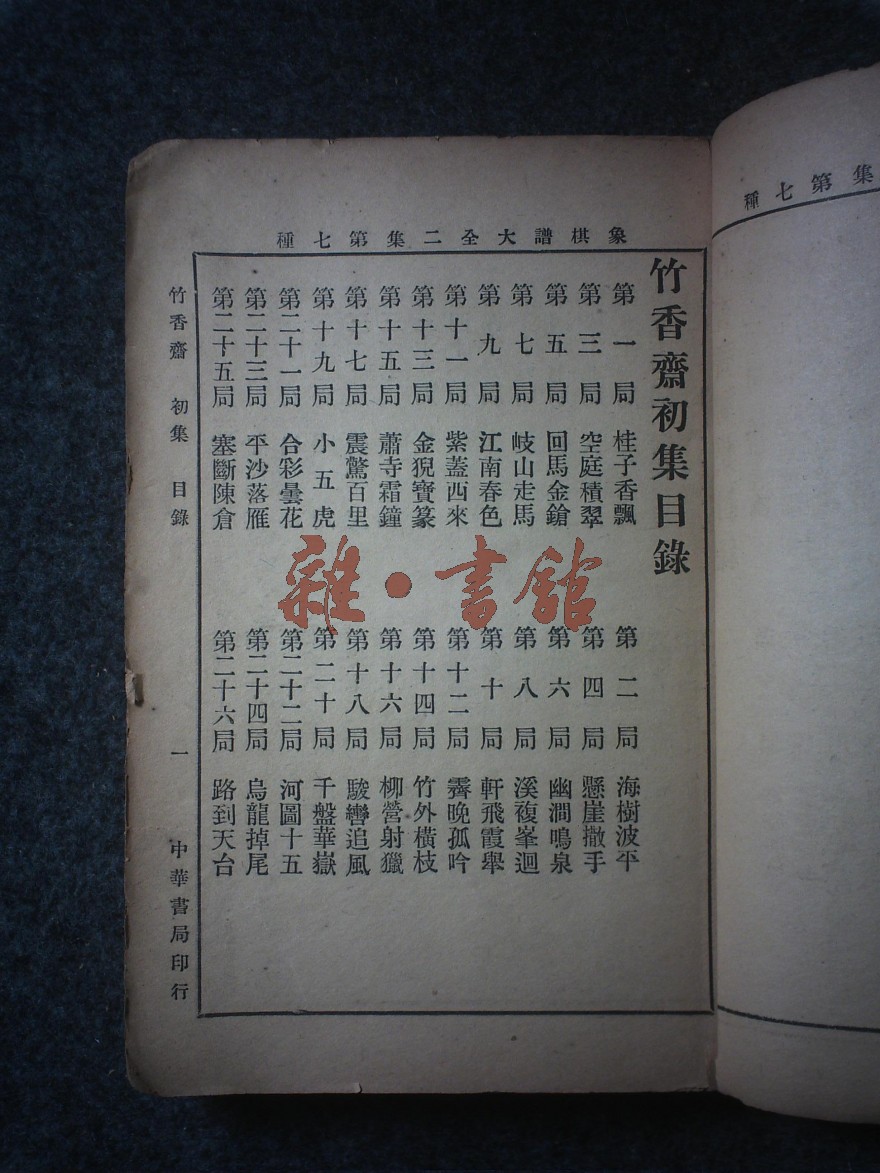 象棋譜大全二集第七種
竹香齋初集目錄
第一局 桂子香飄 第二局 海樹波平
第三局 空庭積翠 第四局 懸崖撒手
第五局 回馬金鎗 第六局 幽澗鳴泉
第七局 岐山走馬 第八局 溪複峯迴
第九局 江南春色 第十局 軒飛霞舉
第十一局 紫蓋西來 第十二局 霽晚孤吟
第十三局 金猊寶篆 第十四局 竹外橫枝
第十五局 蕭寺霜鐘 第十六局 柳營射獵
第十七局 震驚百里 第十八局 駿轡追風
第十九局 小五虎 第二十局 千盤華嶽
第二十一局 合彩曇花 第二十二局 河圖十五
第二十三局 平沙落雁 第二十四局 烏龍掉尾
第二十五局 塞斷陳倉 第二十六局 路到天台
竹香齋 初集 目錄 一 中華書局印行
集第七種
雜·書館